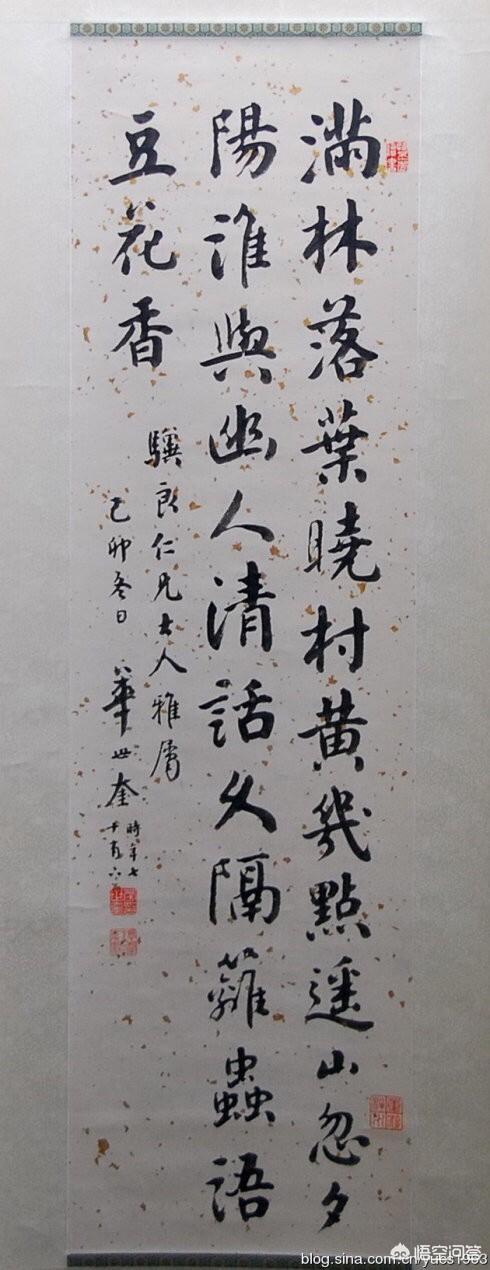 滿林落葉曉村黃幾點遥山忽夕
陽誰與幽人清話久隔籬蟲語
豆花香
驥良仁兄大人雅屬
己卯冬日 華世奎 時年七十有六
悟空问答
blog.sina.com.cn/yues1963